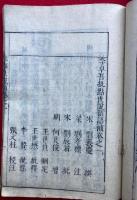 李卓吾批點世說新語補卷之一
宋 劉義慶 撰
梁 劉孝標 注
宋 劉辰翁 批
明 何良俊 增
王世貞 刪定
王世懋 批釋
張文柱 校注